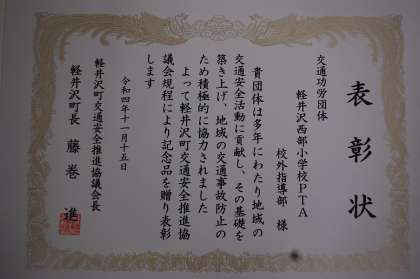 表彰状
交通功労団体
軽井沢西部小学校PTA
校外指導部 様
貴団体は多年にわたり地域の
交通安全活動に貢献し、その基礎を
築き上げ、地域の交通事故防止の
ため積極的に協力されました
よって軽井沢町交通安全推進協
議会規程により記念品を贈り表彰
します
令和四年十一月十五日
軽井沢町交通安全推進協議会長
軽井沢町長 藤巻 進